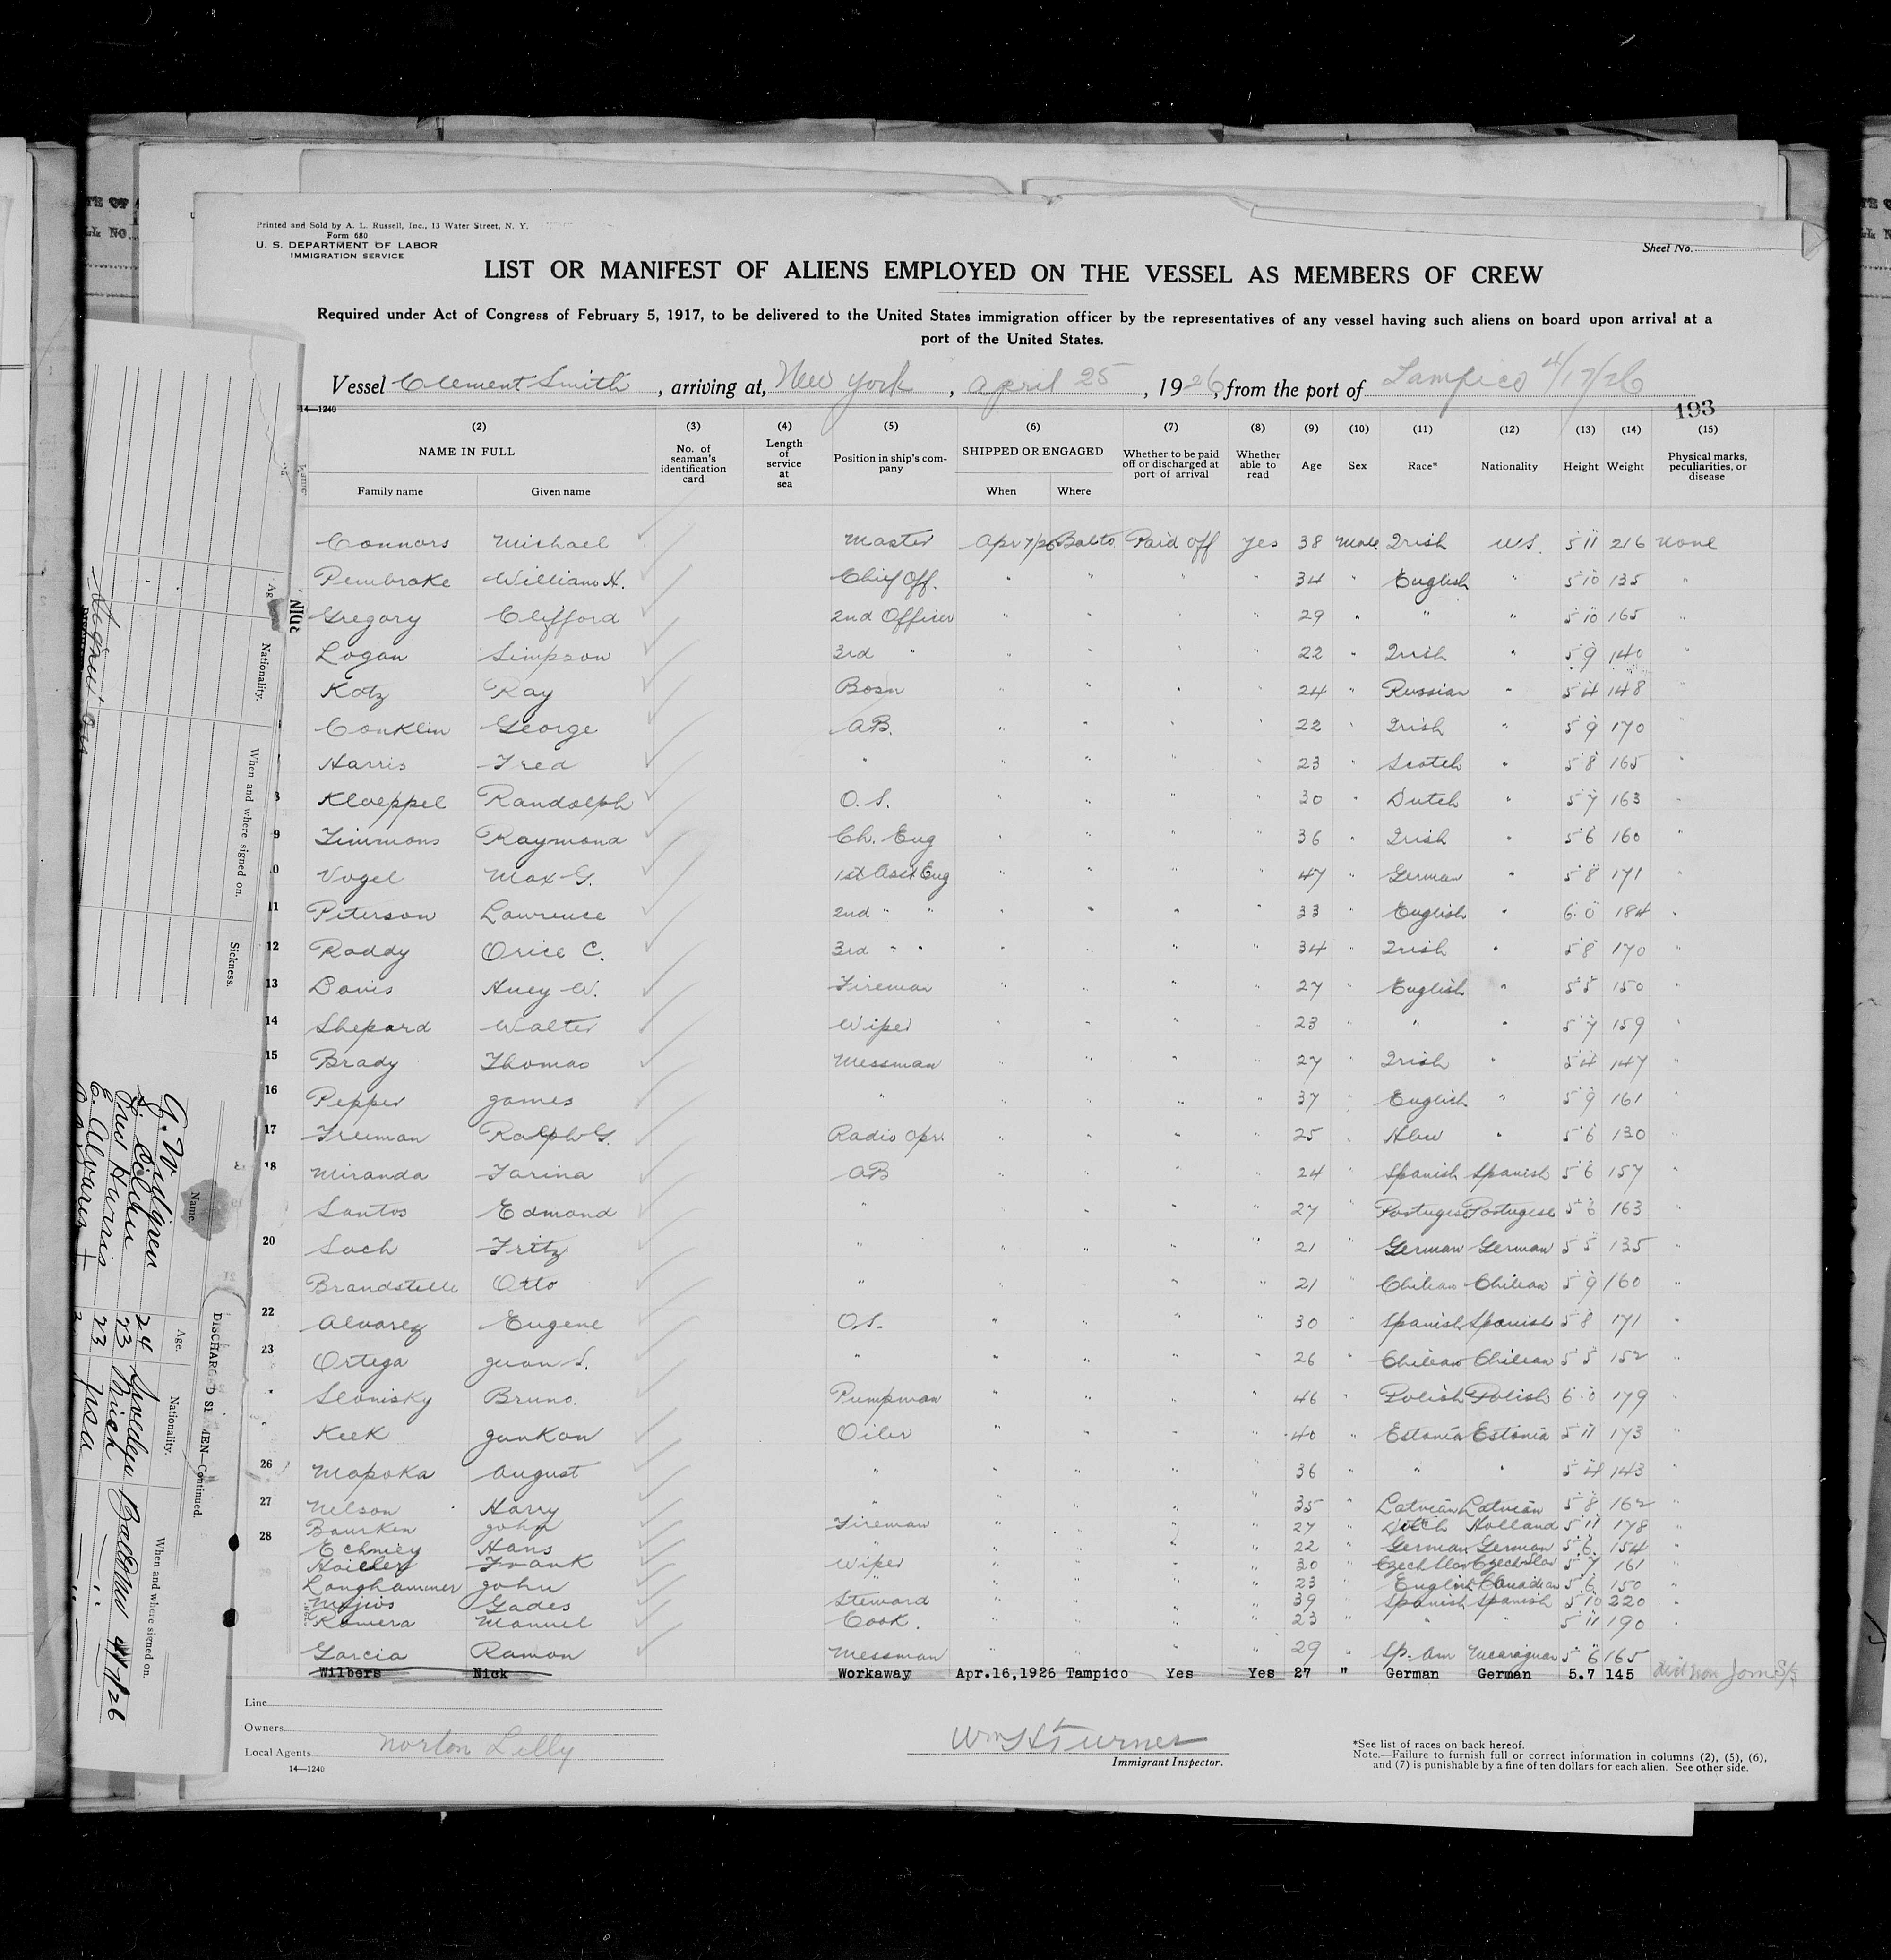 Printed and Sold by A. L. Russell, Inc., 13 Water Street, N. Y.
Form 680
U. S. DEPARTMENT OF LABOR
IMMIGRATION SERVICE
Sheet No.
LIST OR MANIFEST OF ALIENS EMPLOYED ON THE VESSEL AS MEMBERS OF CREW
Required under Act of Congress of February 5, 1917, to be delivered to the United States immigration officer by the representatives of any vessel having such aliens on board upon arrival at a
port of the United States.
Vessel Clement Smith, arriving at, New York, April 25, 1926, from the port of Tampico 4/17/26
14—1240
193
(2) (3) (4) (5) (6) (7) (8) (9) (10) (11) (12) (13) (14) (15)
NAME IN FULL No. of seaman's identification card Length of service at sea Position in ship's company SHIPPED OR ENGAGED Whether to be paid off or discharged at port of arrival Whether able to read Age Sex Race* Nationality Height Weight Physical marks, peculiarities, or disease
Family name Given name When Where
Connors Michael Master Apr 7/26 Balto Paid Off Yes 38 Male Irish U.S. 5 11 216 None
Pembroke William H. Chief Off. " " " " 34 " English " 5 10 135 "
Gregory Clifford 2nd Officer " " " " 29 " " " 5 10 165 "
Logan Simpson 3rd " " " " " 22 " Irish " 5 9 140 "
Katz Ray Bosn " " " " 24 " Russian " 5 4 148 "
Conklin George AB. " " " " 22 " Irish " 5 9 170 "
Harris Fred " " " " " 23 " Scotch " 5 8 165 "
8 Kloeppel Randolph O.S. " " " " 30 " Dutch " 5 7 163 "
9 Timmons Raymond Ch. Eng " " " " 36 " Irish " 5 6 160 "
10 Vogel Max G. 1st Asst Eng " " " " 47 " German " 5 8 171 "
11 Peterson Lawrence 2nd " " " " " " 33 " English " 6 0 184 "
12 Roddy Orice C. 3rd " " " " " " 34 " Irish " 5 8 170 "
13 Davis Huey W. Fireman " " " " 27 " English " 5 5 150 "
14 Shepard Walter Wiper " " " " 23 " " " 5 7 159 "
15 Brady Thomas Messman " " " " 27 " Irish " 5 4 147 "
16 Pepper James " " " " " 37 " English " 5 9 161 "
17 Freeman Ralph G. Radio Opr. " " " " 25 " Hbw " 5 6 130 "
18 Miranda Farina AB " " " " 24 " Spanish Spanish 5 6 157 "
Santos Edmond " " " " " 27 " Portugese Portugese 5 6 163 "
20 Soch Fritz " " " " " 21 " German German 5 5 135 "
Brandstelle Otto " " " " " 21 " Chilean Chilean 5 9 160 "
22 Alvarez Eugene O.S. " " " " 30 " Spanish Spanish 5 8 171 "
23 Ortega Juan S. " " " " " 26 " Chilean Chilean 5 5 152 "
Slonisky Bruno. Pumpman " " " " 46 " Polish Polish 6 0 179 "
Keek Junkon Oiler " " " " 40 " Estonia Estonia 5 11 173 "
26 Mapoka August " " " " " 36 " " " 5 4 143 "
27 Nelson Harry " " " " " 35 " Latvian Latvian 5 8 162 "
Bourken John Fireman " " " " 27 " Dutch Holland 5 11 178 "
28 Echniey Hans " " " " " 22 " German German 5 6 154 "
Frank Wiper " " " " 30 " Czechslav Czechslav 5 7 161
Langhammer John " " " " " 23 " English Canadian 5 6 150 "
Mojios Gades Steward " " " " 39 " Spanish Spanish 5 10 220 "
Romera Manuel Cook. " " " " 23 " " " 5 11 190 "
Garcia Ramon Messman " " " " 29 " Sp. Am Nicaraguan 5 6 165
Wilbers Nick Workaway Apr.16,1926 Tampico Yes Yes 27 " German German 5.7 145 did not join S/S
Line
Owners
Local Agents Norton Lilly
14—1240
Wm H Turner
Immigrant Inspector.
*See list of races on back hereof.
Note.—Failure to furnish full or correct information in columns (2), (5), (6),
and (7) is punishable by a fine of ten dollars for each alien. See other side.
Nationality.
When and where signed on.
Sickness.
DISCHARGED SEAMEN—Continued.
Name. Age. Nationality. When and where signed on.
G. W. 24 Sweden Baltimore 4/7/26
23 " "
Fred Harris 23 USA " "
E. Alvaris